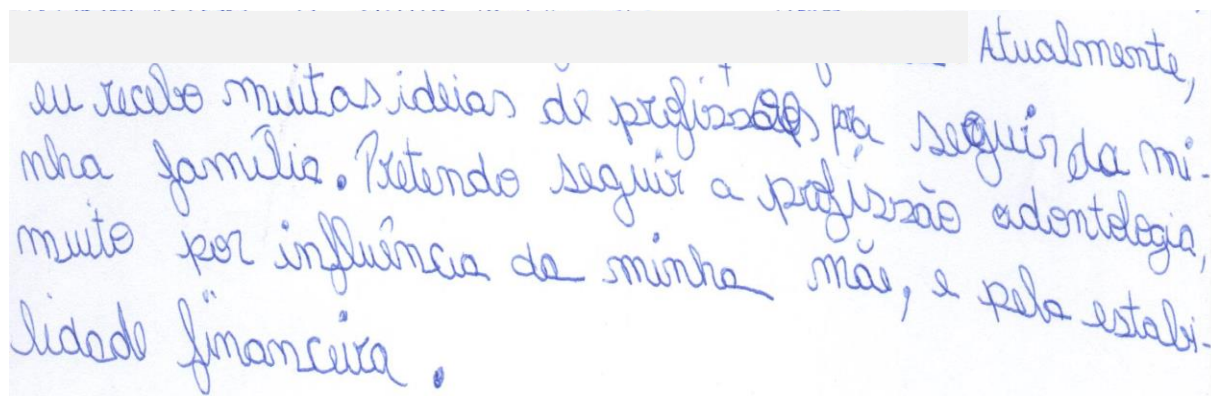 Atualmente,
eu recebo muitas ideias de profissões pra seguir da mi-
nha família. Pretendo seguir a profissão odontologia,
muito por influência da minha mãe, e pela estabi-
lidade financeira.